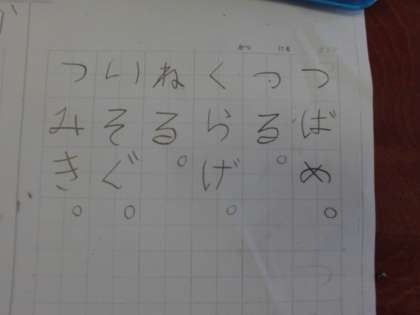 つばめ。
つる。
くらげ。
ねる。
いそぐ。
つみき。